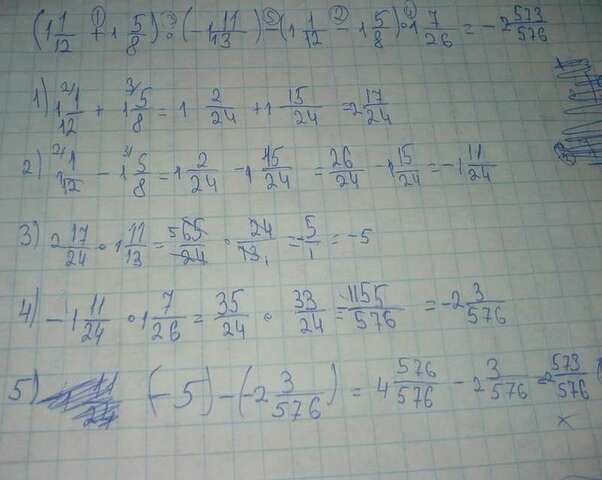 (1 1/12 + 1 5/8) : (-1 11/13) - (1 1/12 - 1 5/8) · 1 7/26 = -2 573/576
1) 1 1/12 + 1 5/8 = 1 2/24 + 1 15/24 = 2 17/24
2) 1 1/12 - 1 5/8 = 1 2/24 - 1 15/24 = 26/24 - 1 15/24 = -1 11/24
3) 2 17/24 · 1 11/13 = 65/24 · 24/13 = -5/1 = -5
4) -1 11/24 · 1 7/26 = 35/24 · 33/24 = 1155/576 = -2 3/576
5) (-5) - (-2 3/576) = 4 576/576 - 2 3/576 = 2 573/576
x